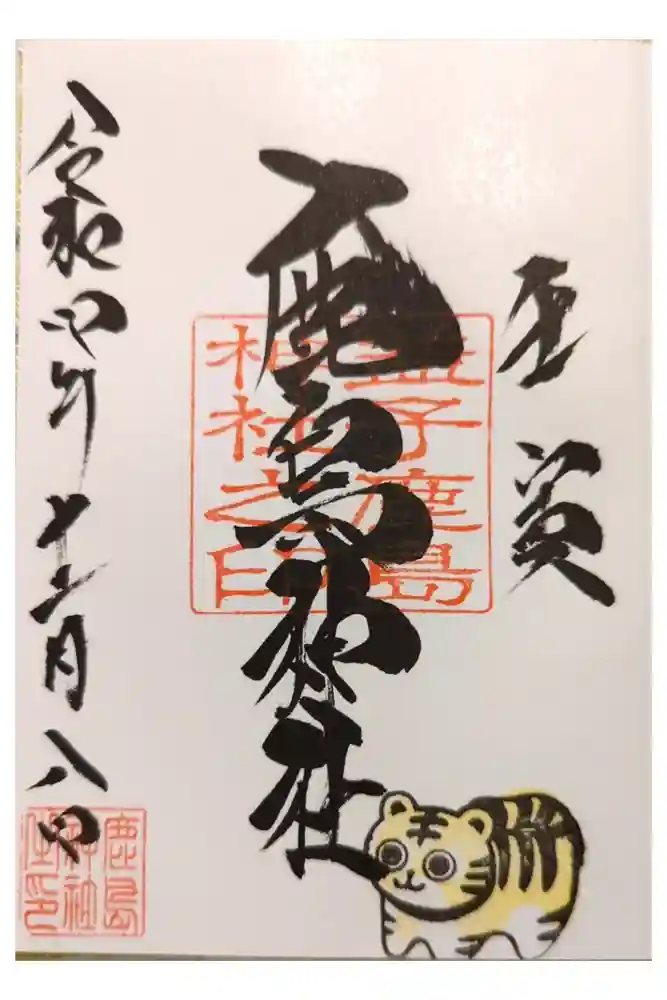 壬寅
鹿島神社
益子鹿島
神社之印
令和四年十二月八日
鹿島
神社